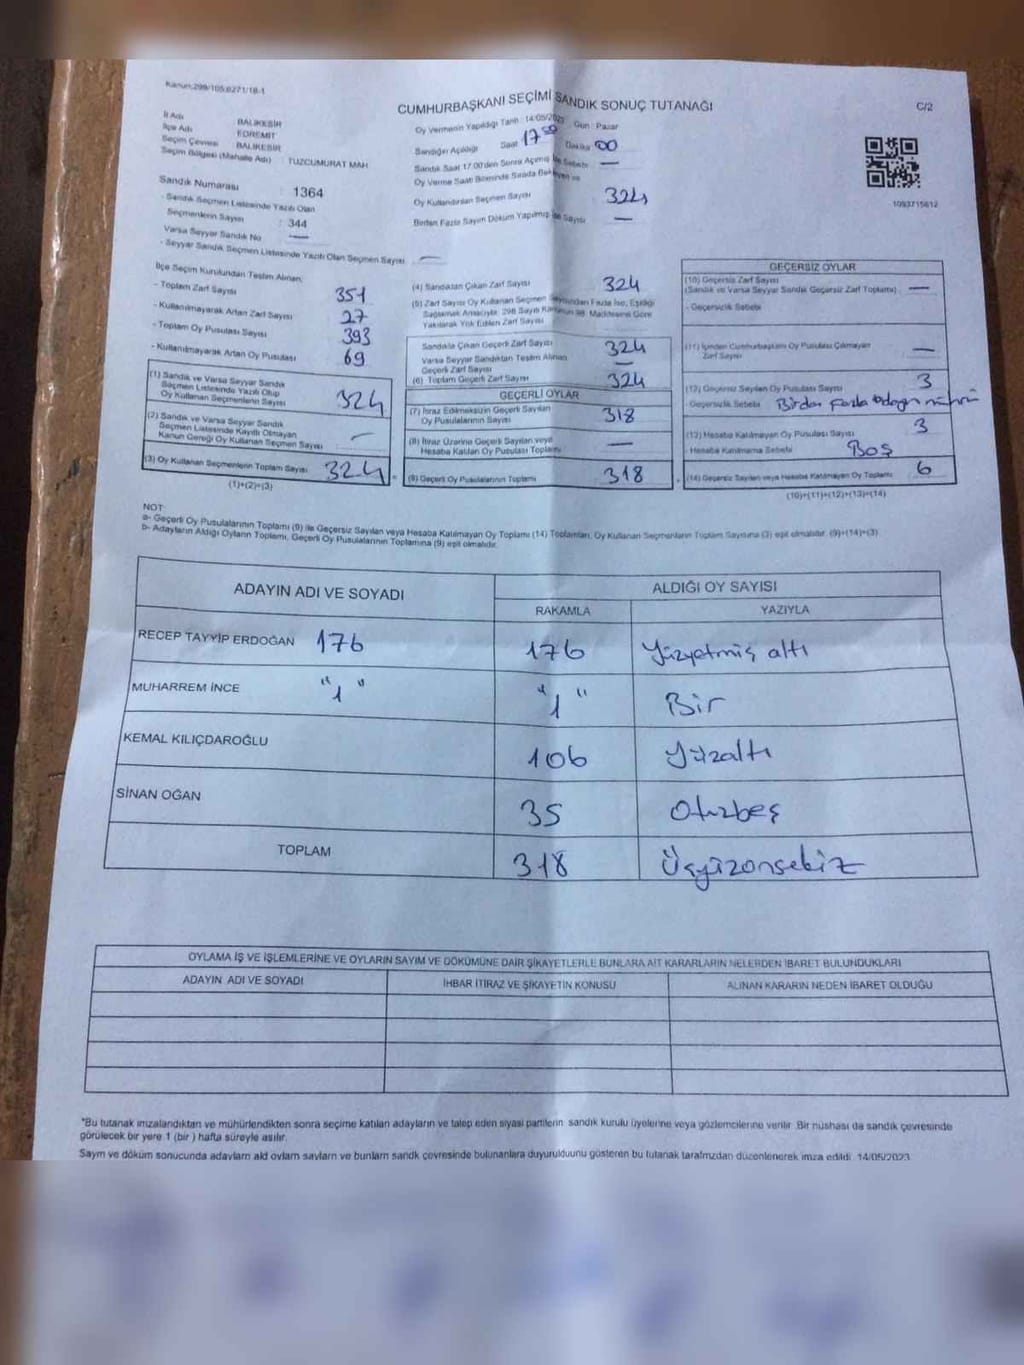 Kanun:298/105,6271/18-1
CUMHURBAŞKANI SEÇİMİ SANDIK SONUÇ TUTANAĞI
C/2
İl Adı : BALIKESİR
İlçe Adı : EDREMİT
Seçim Çevresi : BALIKESİR
Seçim Bölgesi (Mahalle Adı) : TUZCUMURAT MAH.
Sandık Numarası : 1364
- Sandık Seçmen Listesinde Yazılı Olan
Seçmenlerin Sayısı : 344
Varsa Seyyar Sandık No —
- Seyyar Sandık Seçmen Listesinde Yazılı Olan Seçmen Sayısı —
Oy Vermenin Yapıldığı Tarih : 14/05/2023 Gün : Pazar
Sandığın Açıldığı Saat 17 00 Dakika 00
Sandık Saat 17.00'den Sonra Açılmış İse Sebebi —
Oy Verme Saati Bitiminde Sırada Bekleyen ve
Oy Kullandırılan Seçmen Sayısı 324
Birden Fazla Sayım Döküm Yapılmış İse Sayısı —
1093715612
İlçe Seçim Kurulundan Teslim Alınan;
- Toplam Zarf Sayısı 351
- Kullanılmayarak Artan Zarf Sayısı 27
- Toplam Oy Pusulası Sayısı 393
- Kullanılmayarak Artan Oy Pusulası 69
(1) Sandık ve Varsa Seyyar Sandık
Seçmen Listesinde Yazılı Olup
Oy Kullanan Seçmenlerin Sayısı 324
(2) Sandık ve Varsa Seyyar Sandık
Seçmen Listesinde Kayıtlı Olmayan
Kanun Gereği Oy Kullanan Seçmen Sayısı —
(3) Oy Kullanan Seçmenlerin Toplam Sayısı 324
(1)+(2)=(3)
(4) Sandıktan Çıkan Zarf Sayısı 324
(5) Zarf Sayısı Oy Kullanan Seçmen Sayısından Fazla İse, Eşitliği
Sağlamak Amacıyla, 298 Sayılı Kanunun 98. Maddesine Göre
Yakılarak Yok Edilen Zarf Sayısı
Sandıkta Çıkan Geçerli Zarf Sayısı 324
Varsa Seyyar Sandıktan Teslim Alınan
Geçerli Zarf Sayısı —
(6) Toplam Geçerli Zarf Sayısı 324
GEÇERLİ OYLAR
(7) İtiraz Edilmeksizin Geçerli Sayılan
Oy Pusulalarının Sayısı 318
(8) İtiraz Üzerine Geçerli Sayılan veya
Hesaba Katılan Oy Pusulası Toplamı —
(9) Geçerli Oy Pusulalarının Toplamı 318
GEÇERSİZ OYLAR
(10) Geçersiz Zarf Sayısı
(Sandık ve Varsa Seyyar Sandık Geçersiz Zarf Toplamı) —
- Geçersizlik Sebebi
(11) İçinden Cumhurbaşkanı Oy Pusulası Çıkmayan
Zarf Sayısı —
(12) Geçersiz Sayılan Oy Pusulası Sayısı 3
- Geçersizlik Sebebi Birden fazla adaya mühür
(13) Hesaba Katılmayan Oy Pusulası Sayısı 3
- Hesaba Katılmama Sebebi Boş
(14) Geçersiz Sayılan veya Hesaba Katılmayan Oy Toplamı 6
(10)+(11)+(12)+(13)=(14)
NOT:
a- Geçerli Oy Pusulalarının Toplamı (9) ile Geçersiz Sayılan veya Hesaba Katılmayan Oy Toplamı (14) Toplamları, Oy Kullanan Seçmenlerin Toplam Sayısına (3) eşit olmalıdır. (9)+(14)=(3)
b- Adayların Aldığı Oyların Toplamı, Geçerli Oy Pusulalarının Toplamına (9) eşit olmalıdır.
ADAYIN ADI VE SOYADI
ALDIĞI OY SAYISI
RAKAMLA YAZIYLA
RECEP TAYYİP ERDOĞAN 176 176 Yüzyetmiş altı
MUHARREM İNCE "1" "1" Bir
KEMAL KILIÇDAROĞLU 106 Yüzaltı
SİNAN OĞAN 35 Otuzbeş
TOPLAM 318 Üçyüzonsekiz
OYLAMA İŞ VE İŞLEMLERİNE VE OYLARIN SAYIM VE DÖKÜMÜNE DAİR ŞİKAYETLERLE BUNLARA AİT KARARLARIN NELERDEN İBARET BULUNDUKLARI
ADAYIN ADI VE SOYADI İHBAR İTİRAZ VE ŞİKAYETİN KONUSU ALINAN KARARIN NEDEN İBARET OLDUĞU
*Bu tutanak imzalandıktan ve mühürlendikten sonra seçime katılan adayların ve talep eden siyasi partilerin sandık kurulu üyelerine veya gözlemcilerine verilir. Bir nüshası da sandık çevresinde
görülecek bir yere 1 (bir ) hafta süreyle asılır.
Sayım ve döküm sonucunda adayların aldı oyların sayıları ve bunların sandık çevresinde bulunanlara duyurulduunu gösteren bu tutanak tarafımızdan düzenlenerek imza edildi. 14/05/2023